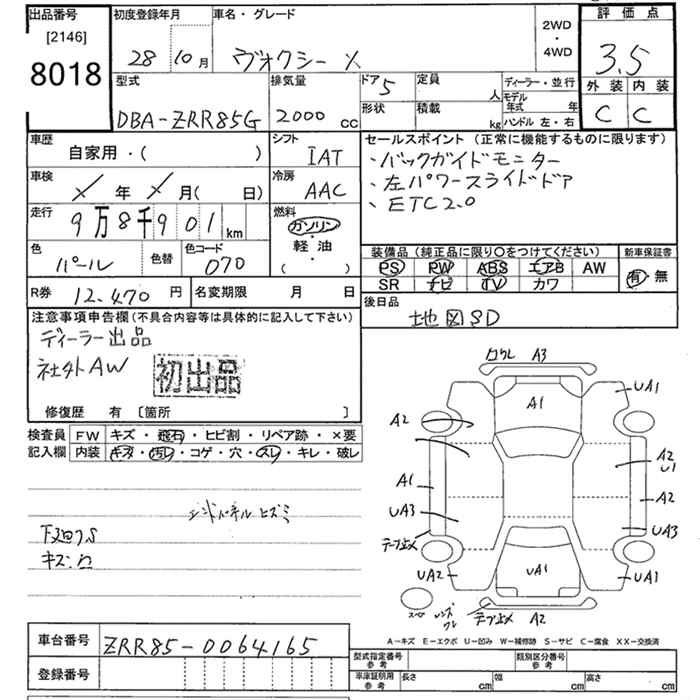 出品番号 初度登録年月 車名・グレード 2WD・4WD 評価点
[2146]
8018 28年10月 ヴォクシー X 3.5
型式 排気量 ドア 5 定員 人 ディーラー・並行 外装 内装
DBA-ZRR85G 2000 cc 形状 積載 kg モデル年式 年 ハンドル 左・右 C C
車歴 シフト セールスポイント (正常に機能するものに限ります)
自家用・( ) IAT ・バックガイドモニター
車検 冷房 ・左パワースライドドア
X年X月(日) AAC ・ETC2.0
走行 燃料
9万8千901km ガソリン・軽油( )
色 色替 色コード 装備品(純正品に限り○をつけてください) 新車保証書
パール 070 PS PW ABS エアB AW 有・無
SR ナビ TV カワ
R券 12,470円 名変期限 月 日 後日品
地図SD
注意事項申告欄(不具合内容等は具体的に記入して下さい)
ディーラー出品
社外AW 初出品
修復歴 有 〔箇所 〕
検査員 FW キズ・飛石・ヒビ割・リペア跡・×要
記入欄 内装 キズ・汚レ・コゲ・穴・スレ・キレ・破レ
エンドパネル ヒズミ
下廻りS
キズ凹
A3
A1 UA1
A2
A2
U1
A1 A2
UA3 UA3
テープ止メ
UA2 UA1 UA1
テープ止メ A2
A-キズ E-エクボ U-凹み W-補修跡 S-サビ C-腐食 XX-交換済
車台番号 ZRR85-0064165
型式指定番号 参考 類別区分番号 参考
登録番号 車庫証明用 参考 長さ cm 幅 cm 高さ cm